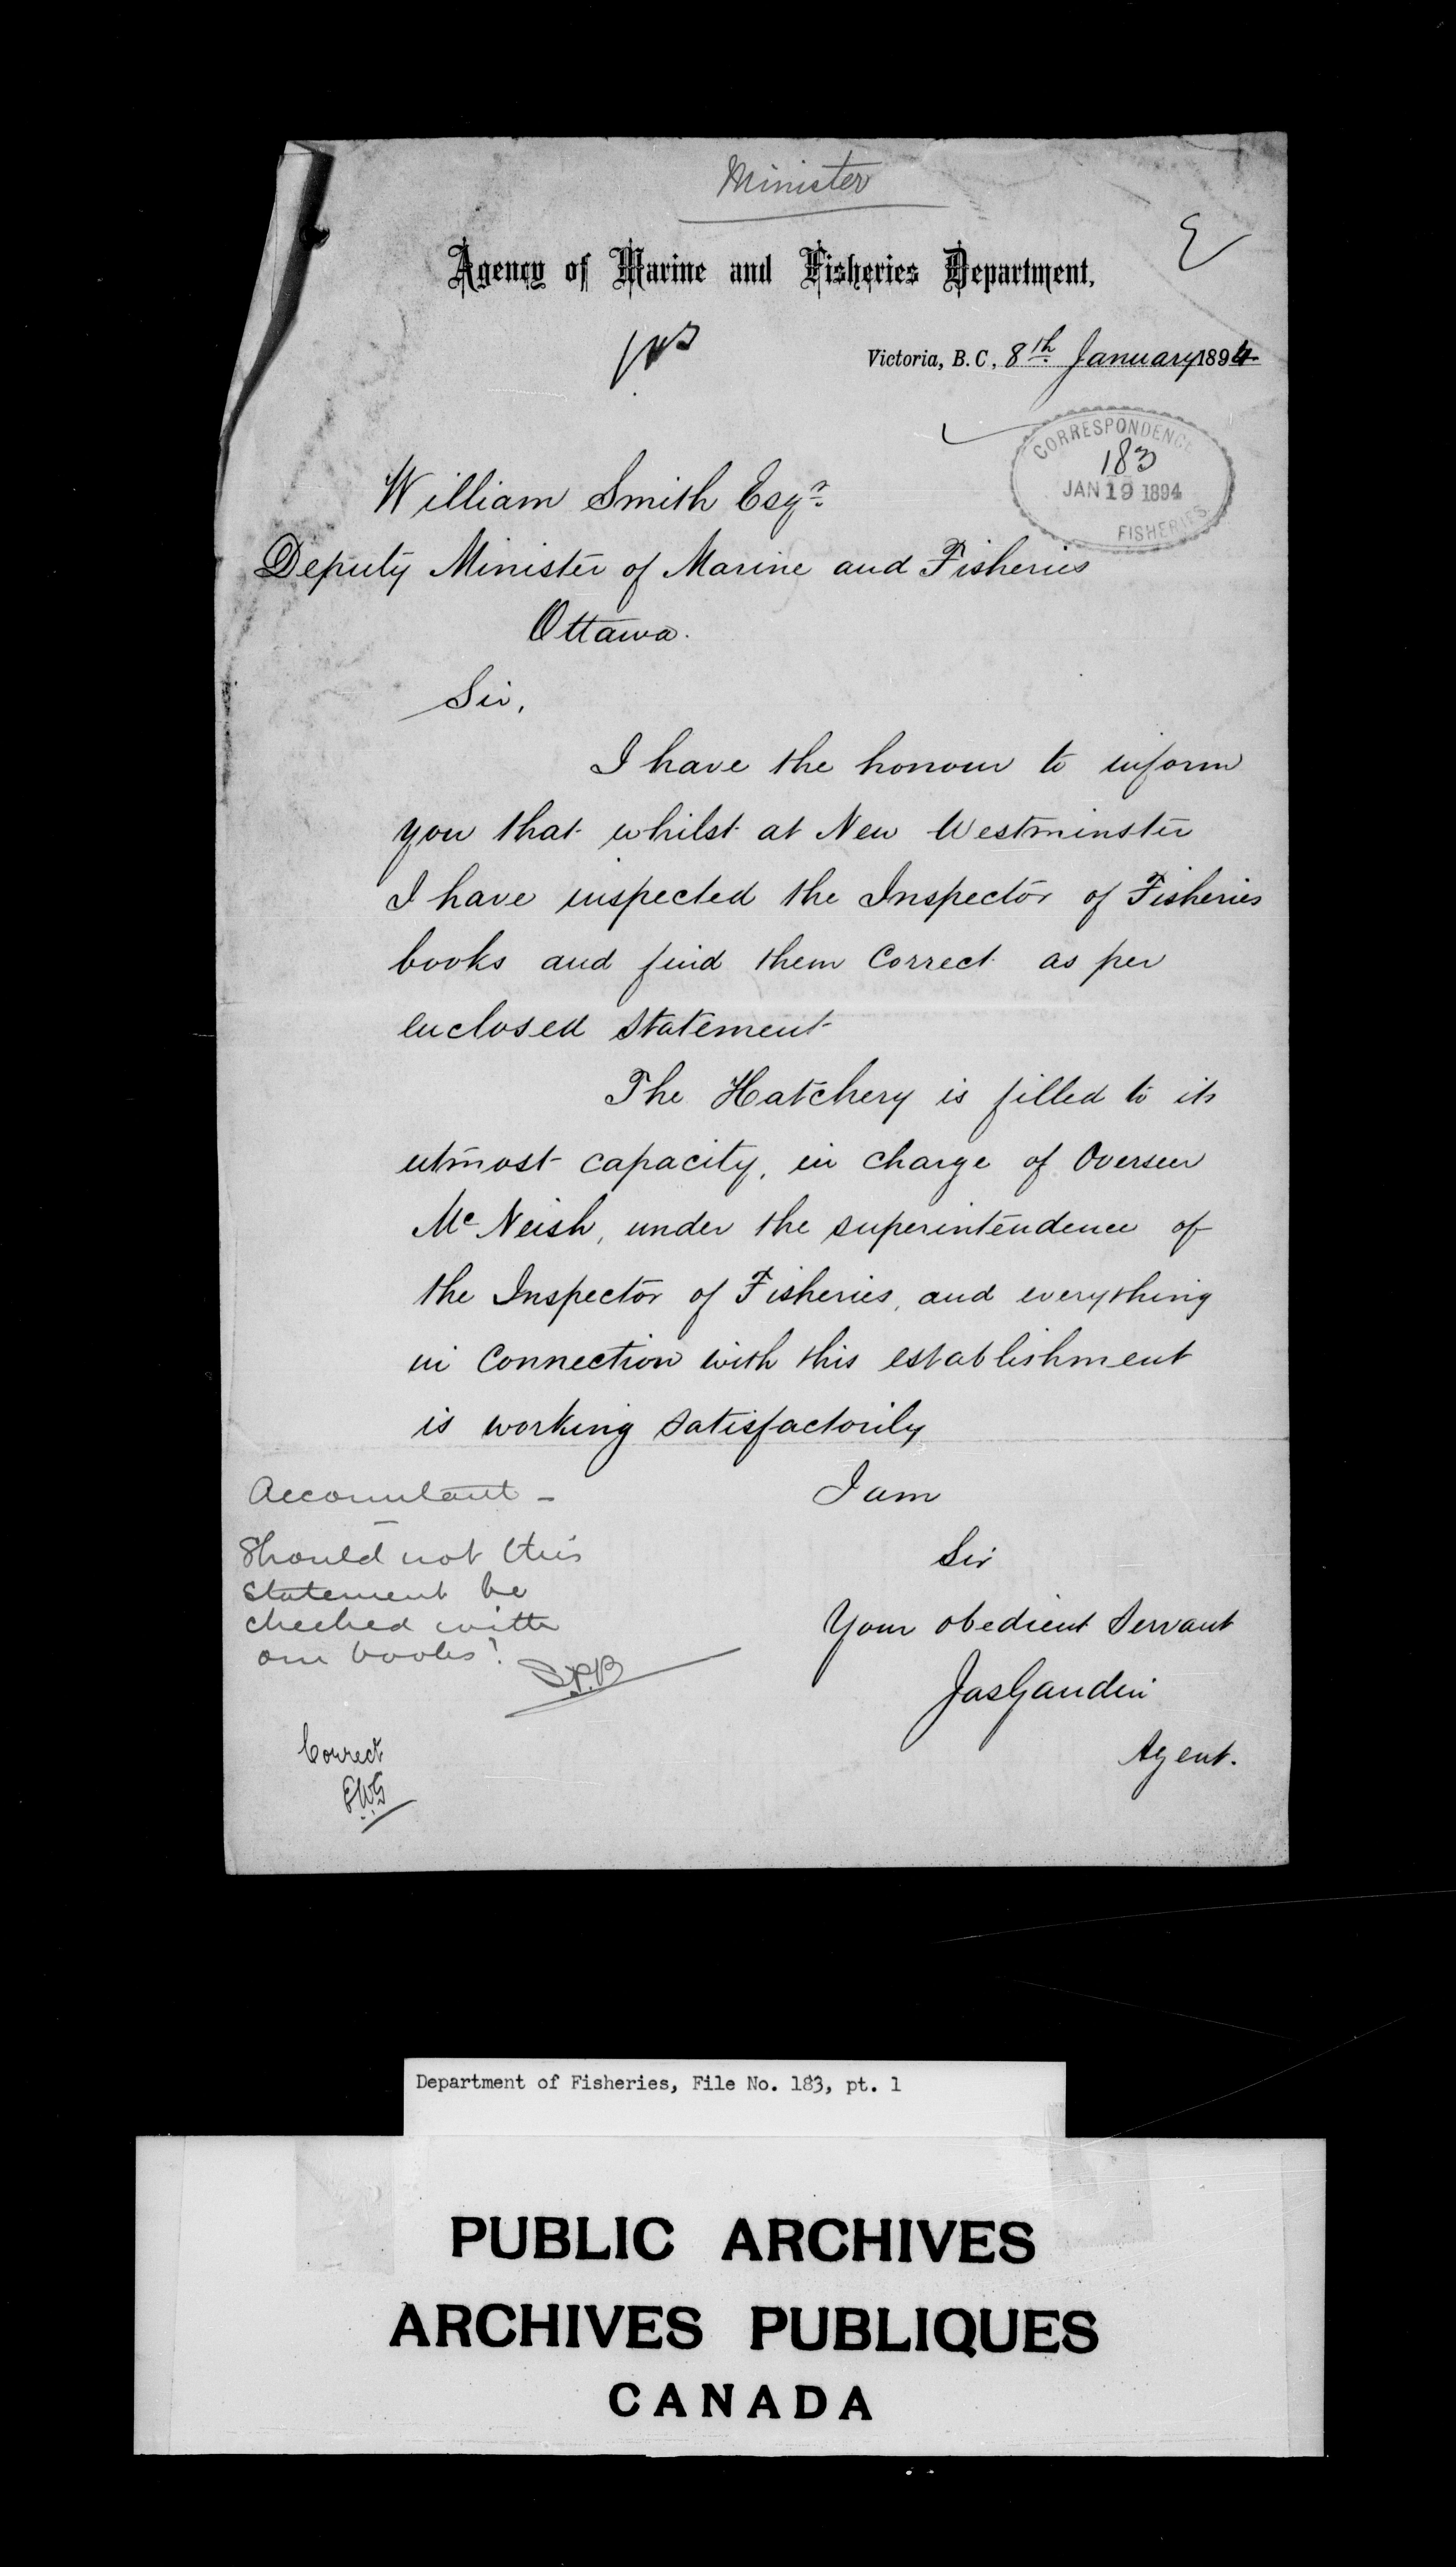 Minister
Agency of Marine and Fisheries Department.
Victoria, B.C., 8th January 1894
CORRESPONDENCE
183
JAN 19 1894
FISHERIES
William Smith Esqr.
Deputy Minister of Marine and Fisheries
Ottawa.
Sir,
I have the honour to inform
you that whilst at New Westminster
I have inspected the Inspector of Fisheries
books and find them Correct as per
enclosed statement
The Hatchery is filled to its
utmost capacity, in charge of Overseer
McNeish, under the superintendence of
the Inspector of Fisheries, and everything
in Connection with this establishment
is working satisfactorily
I am
Sir
Your obedient Servant
Jas Gaudin
Agent.
Accountant -
Should not this
statement be
checked with
our books?
S.P.B
Correct
EWG
Department of Fisheries, File No. 183, pt. 1
PUBLIC ARCHIVES
ARCHIVES PUBLIQUES
CANADA